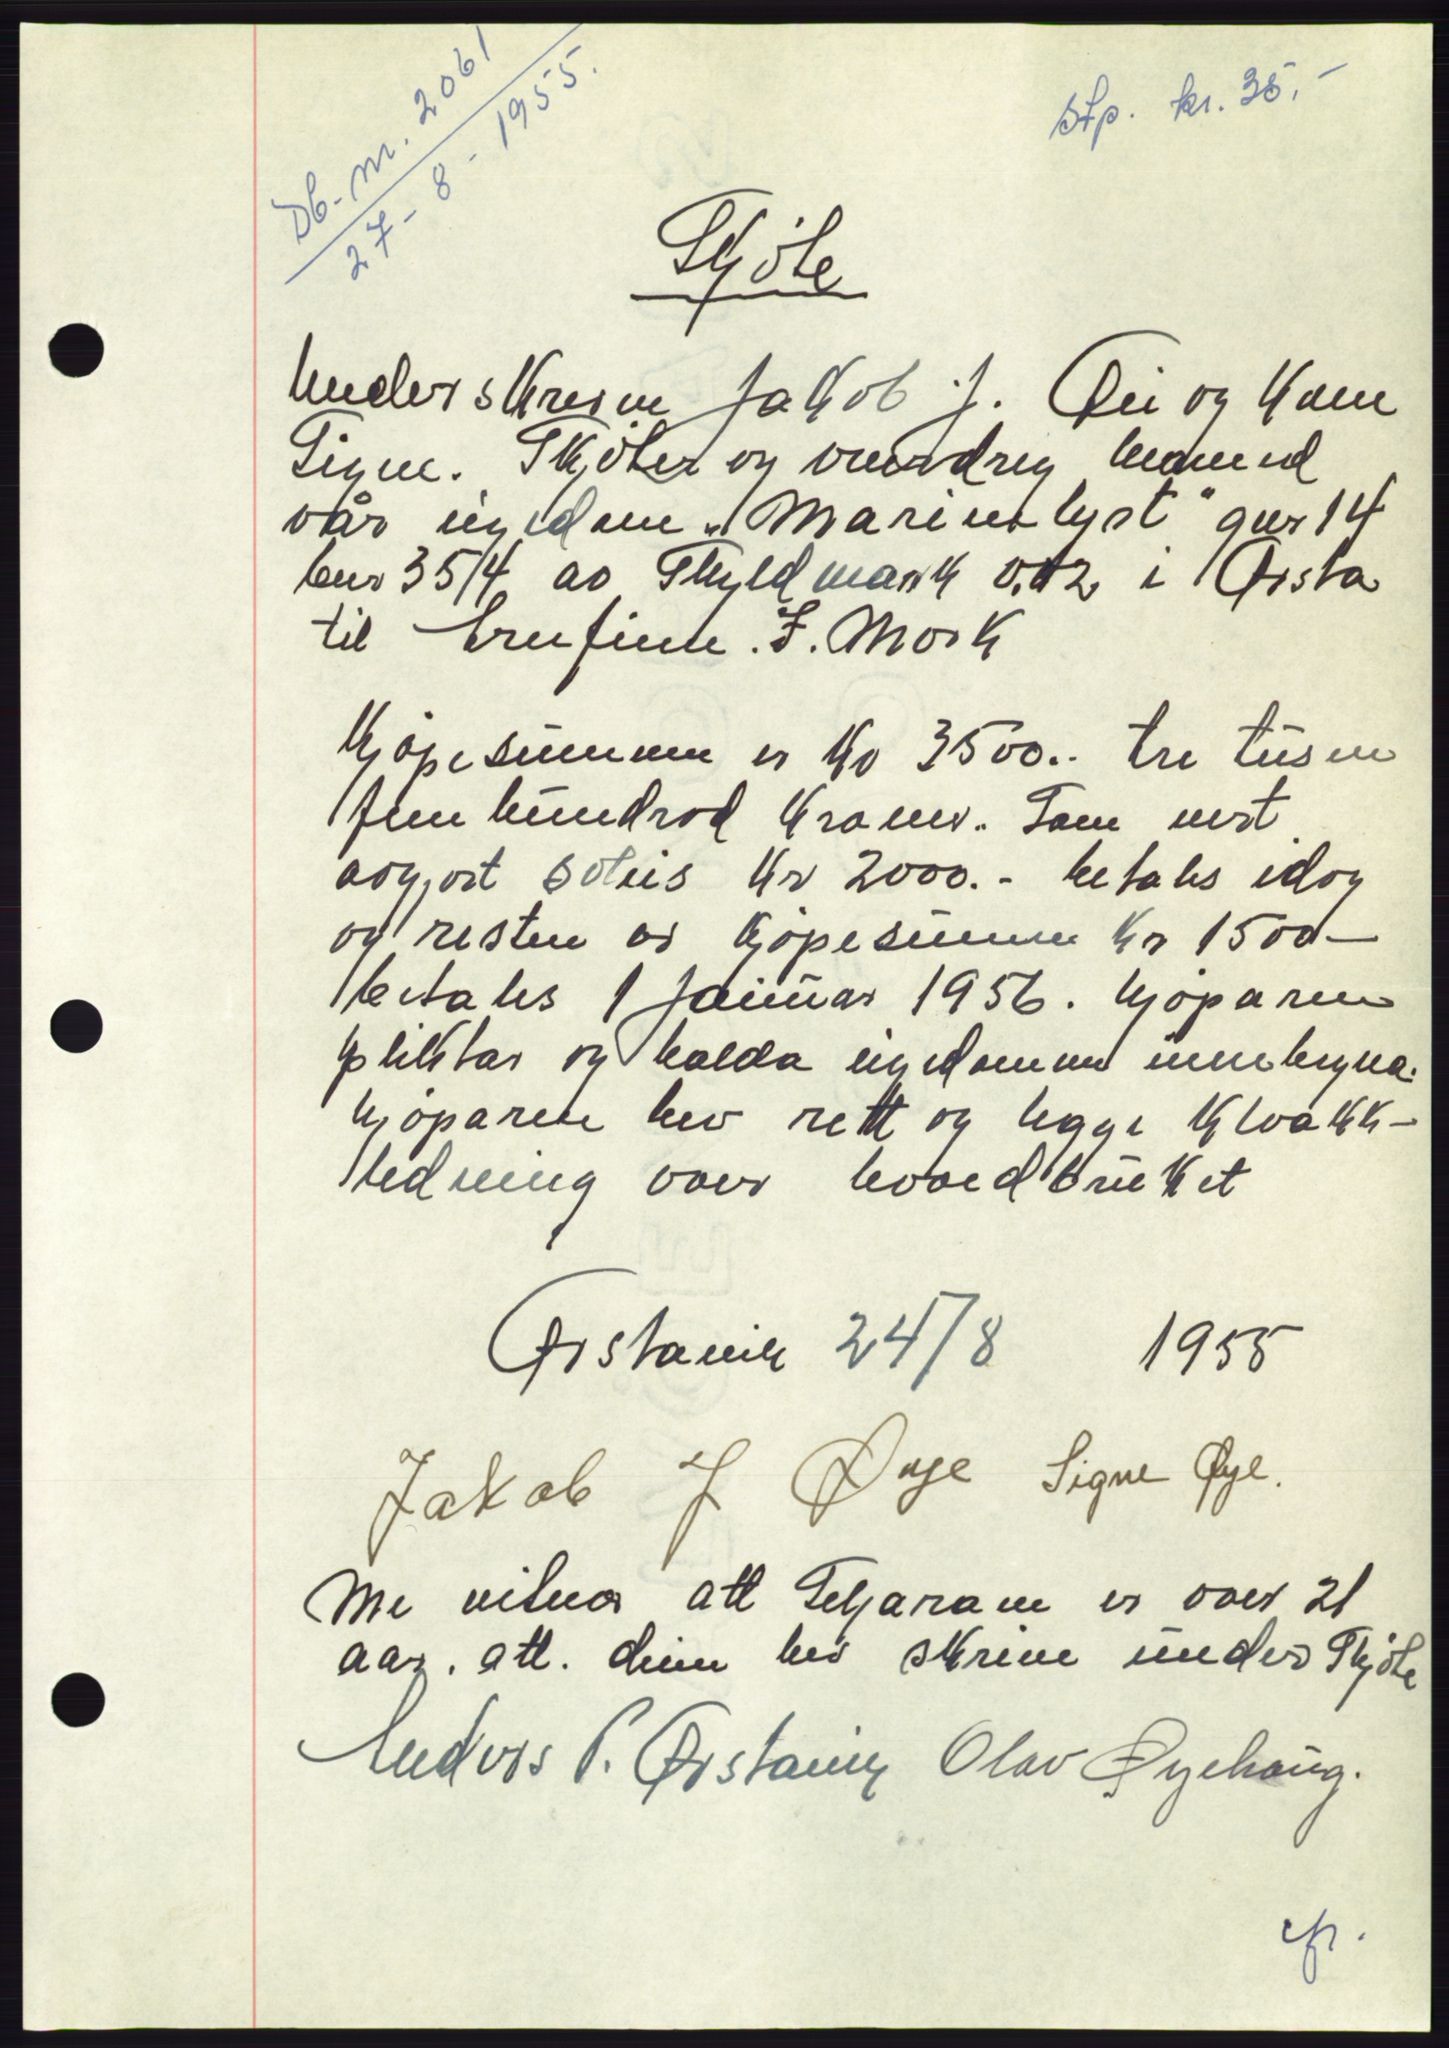 Db. nr. 2061
27-8-1955.
Stp. kr. 35.-
Skjöte
Underskreven Jakob J. Öie og Kone
Signe. Skjöter og overdreg hermed
vår eigedom „Marienlyst" gnr 14
bnr 35/4 av Skyldmark 0.12 i Örsta
til Finn J. Mork
Kjöpesummen er Kr 3500.- tre tusen
fem hundrad Kroner. Som vert
avgjort soleis Kr 2000.- betales idag
og resten av Kjöpesummen Kr 1500-
betales 1 Januar 1956. Kjöparen
pliktar og halda eigedommen innhegna.
Kjöparen hev rett og legge Kloakk-
ledning over hovedbruket
Örstavik 24/8 1955
Jakob J Øye Signe Øye.
Me vitnar att Seljarane er over 21
aar. att. deim hev skrive under Skjöte
Anders P. Ørstavik Olav Øyehaug.